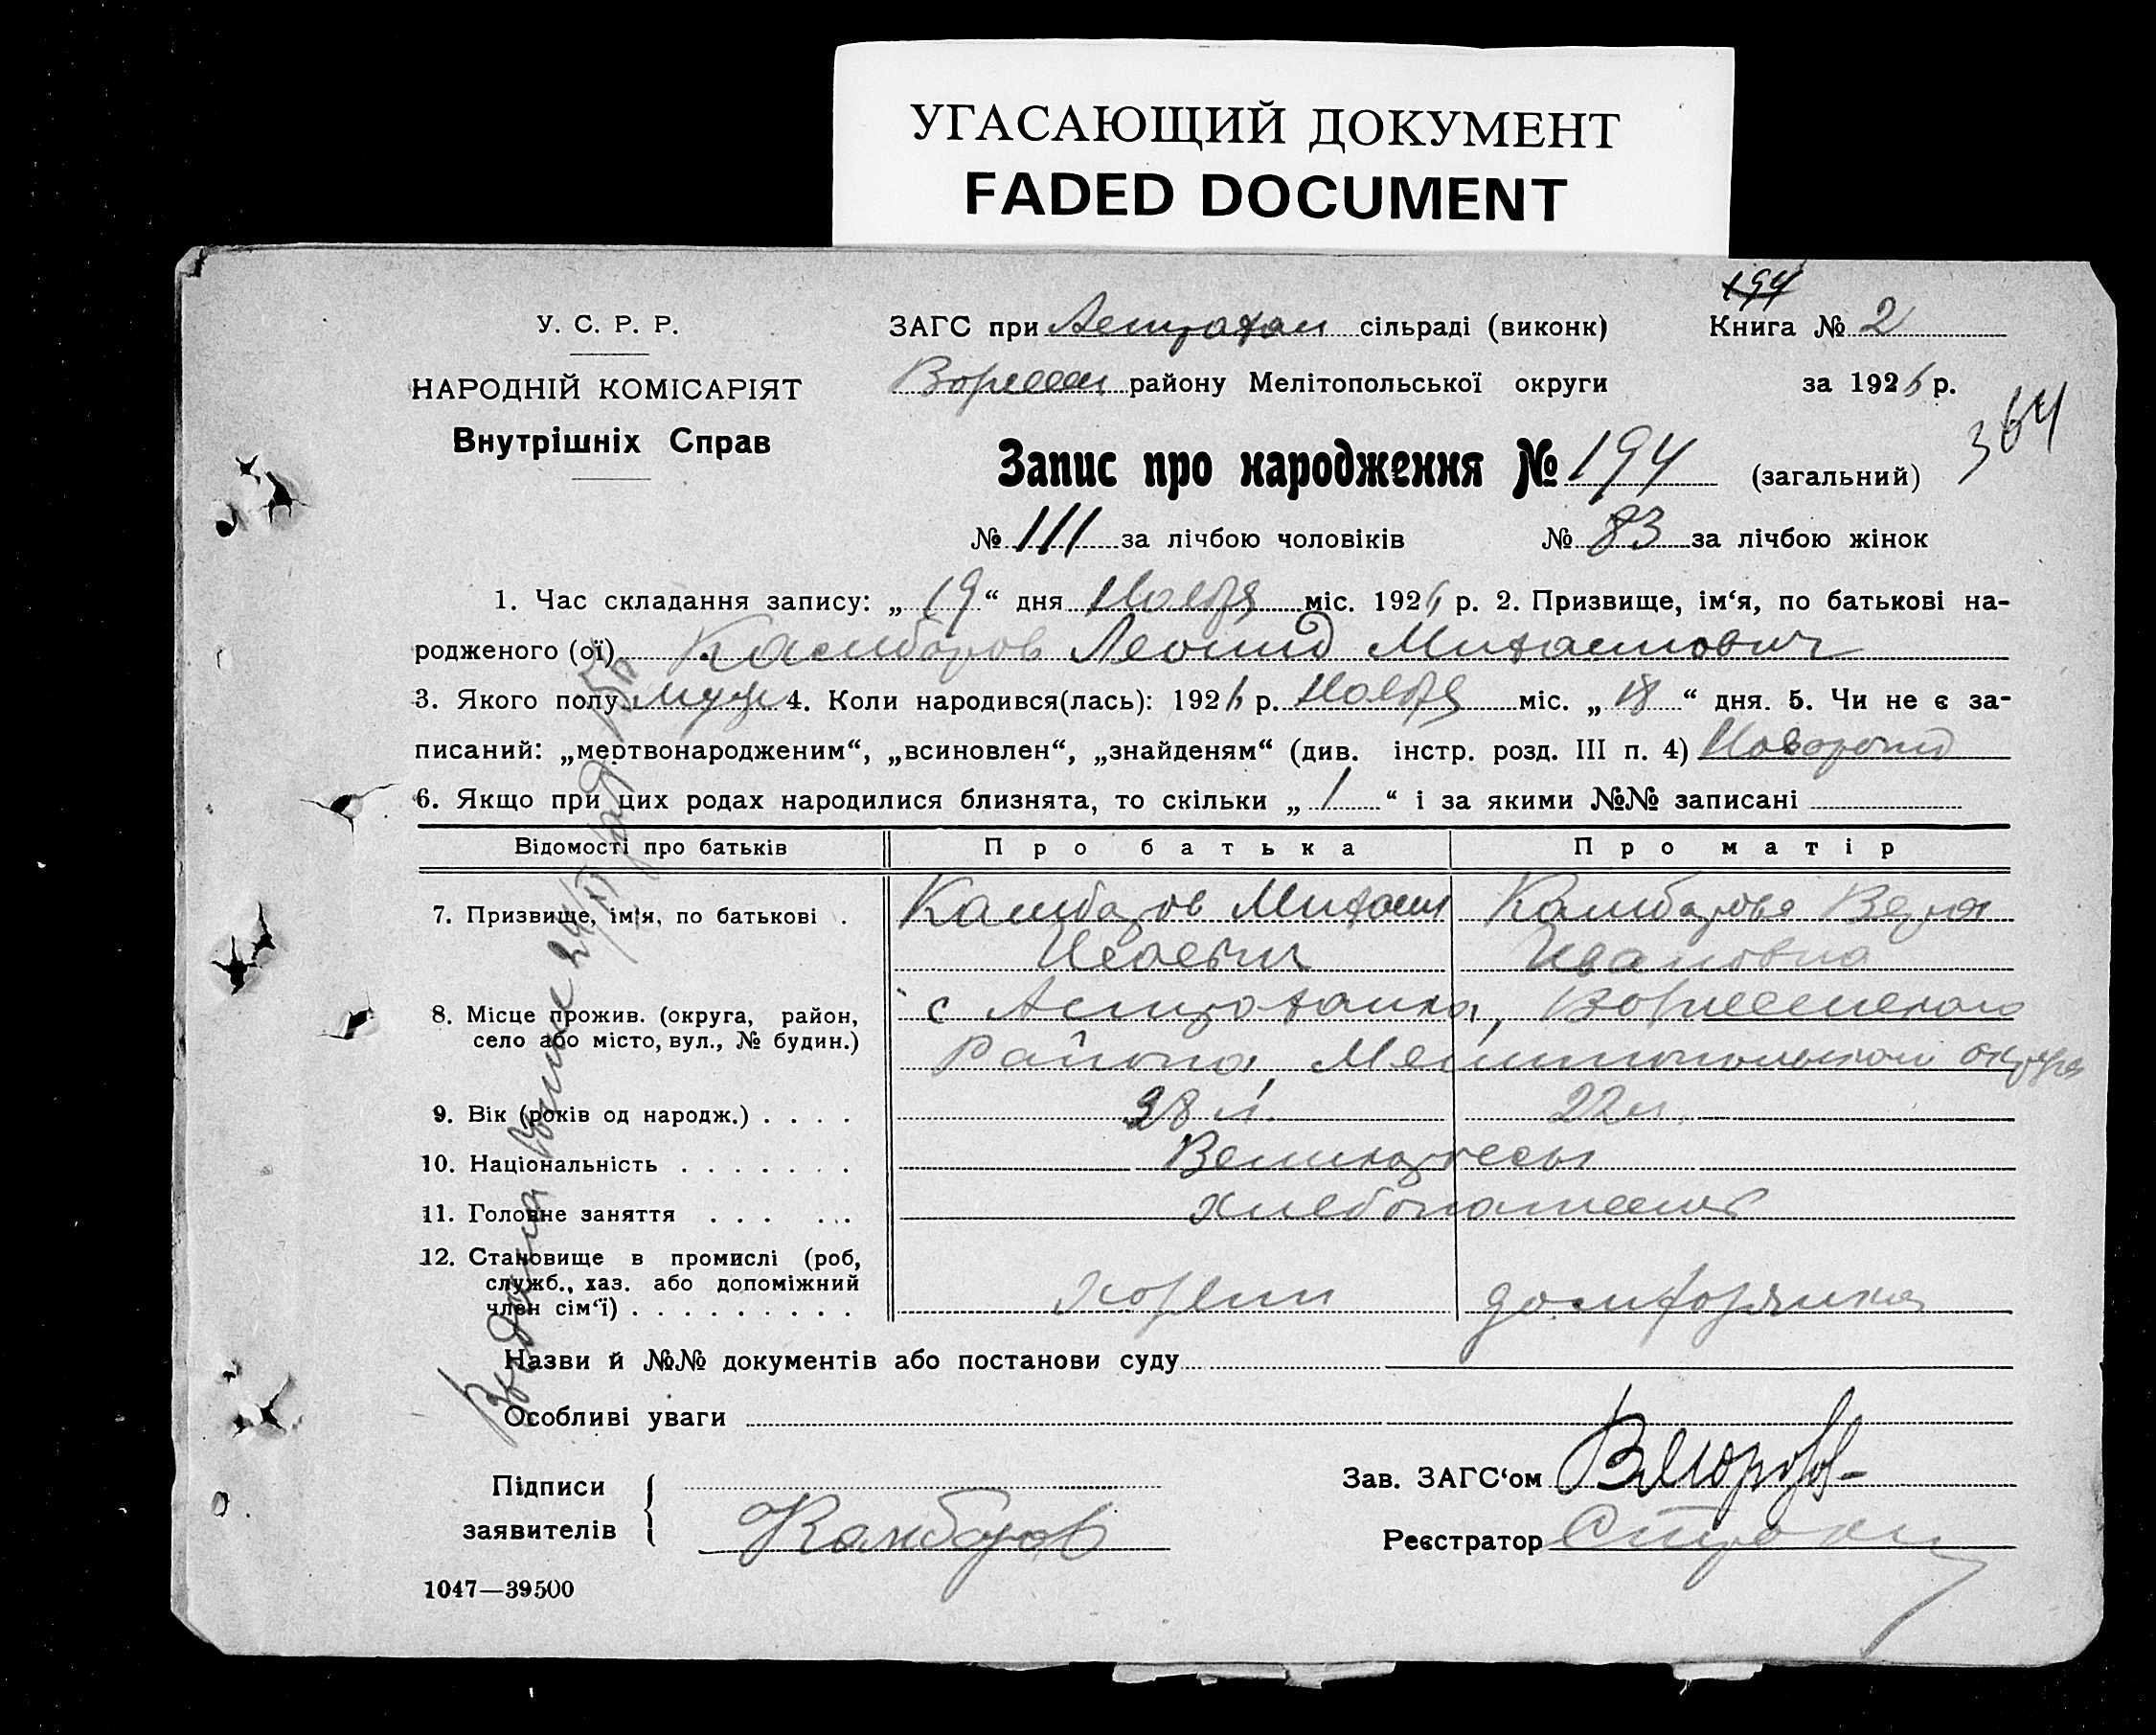 УГАСАЮЩИЙ ДОКУМЕНТ
FADED DOCUMENT
194
У. С. Р. Р.
ЗАГС при Астрахан сільраді (виконк)
Книга № 2
НАРОДНІЙ КОМІСАРІЯТ
району Мелітопольської округи
за 1926 р.
Внутрішніх Справ
364
Запис про народження № 194 (загальний)
№ 111 за лічбою чоловіків № 83 за лічбою жінок
1. Час складання запису: „ 19 “ дня Ноября міс. 1926 р. 2. Призвище, ім‘я, по батькові на-
родженого (ої) Камбаров Леонид Михайлович
3. Якого полу муж 4. Коли народився(лась): 1926 р. Ноября міс. „ 18 “ дня. 5. Чи не є за-
писаний: „мертвонародженим“, „всиновлен“, „знайденям“ (див. інстр. розд. III п. 4) Новорожд
6. Якщо при цих родах народилися близнята, то скільки „ 1 “ і за якими №№ записані
Відомості про батьків
Про батька
Про матір
7. Призвище, ім‘я, по батькові .
Камбаров Михаил
Камбарова Вера
Ивановна
8. Місце прожив. (округа, район,
село або місто, вул., № будин.)
с Астраханка, Вознесенского
Района, Мелитопольского округа
9. Вік (років од народж.) . . . .
28 л.
22 л.
10. Національність . . . . . . .
Великороссы
11. Головне заняття . . . . . .
хлебопашец
12. Становище в промислі (роб,
служб., хаз. або допоміжний
член сім‘ї) . . . . . . . . .
хозяин
домхозяйка
Назви й №№ документів або постанови суду
Особливі уваги
Підписи
заявителів
Камбаров
Зав. ЗАГС‘ом
Реєстратор
1047—39500